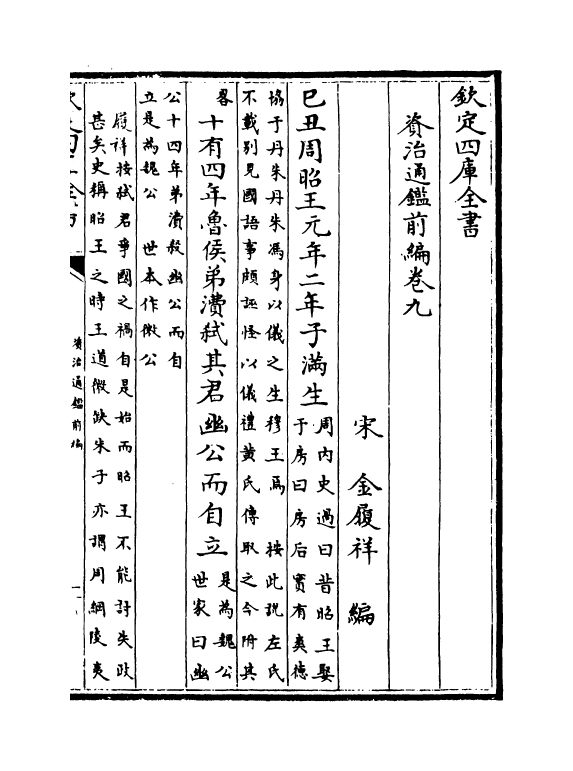 欽定四庫全書
資治通鑑前編卷九
宋 金履祥 編
己丑周昭王元年二年子滿生
周内史過曰昔昭王娶
于房曰房后實有爽德
協于丹朱丹朱馮身以儀之生穆王焉 按此說左氏
不載别見國語事頗誣怪以儀禮黄氏傳取之今附其
畧
十有四年魯侯弟㵒弑其君幽公而自立
是為魏公
世家曰幽
公十四年弟㵒殺幽公而自
立是為魏公 世本作微公
履祥按弑君爭國之禍自是始而昭王不能討失政
甚矣史稱昭王之時王道微缺朱子亦謂周綱陵夷
資治通鑑前編